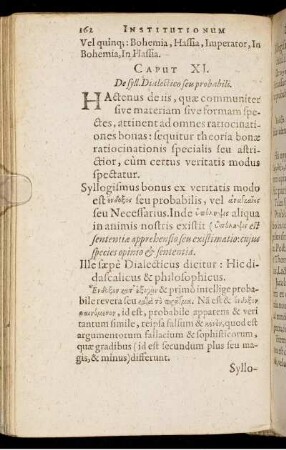 162 INSTITUTIONUM
Vel quinq;: Bohemia, Hassia, Imperator, In
Bohemia, In Hassia.
CAPUT XI.
De syll. Dialectico seu probabili.
HActenus de iis, quæ communiter
sive materiam sive formam spe-
ctes, attinent ad omnes ratiocinati-
ones bonas: sequitur theoria bonæ
ratiocinationis specialis seu astri-
ctior, cùm certus veritatis modus
spectatur.
Syllogismus bonus ex veritatis modo
est ἔνδοξος seu probabilis, vel
seu Necessarius. Inde ὑπόληψις aliqua
in animis nostris existit (ὑπόληψις est
sententiæ apprehensio seu existimatio: cujus
species opinio & scientia.
Ille sæpè Dialecticus dicitur: Hic di-
dascalicus & philosophicus.
Ἔνδοξον κατ' ἐξοχὴν & primò intellige proba-
bile revera seu Nã est &
φαινόμενος, id est, probabile apparens & veri-
tantum simile, reipsa falsum & quod est
argumentorum fallacium & sophisticorum,
quæ gradibus (id est secundum plus seu ma-
gis, & minus) differunt.
Syllo-